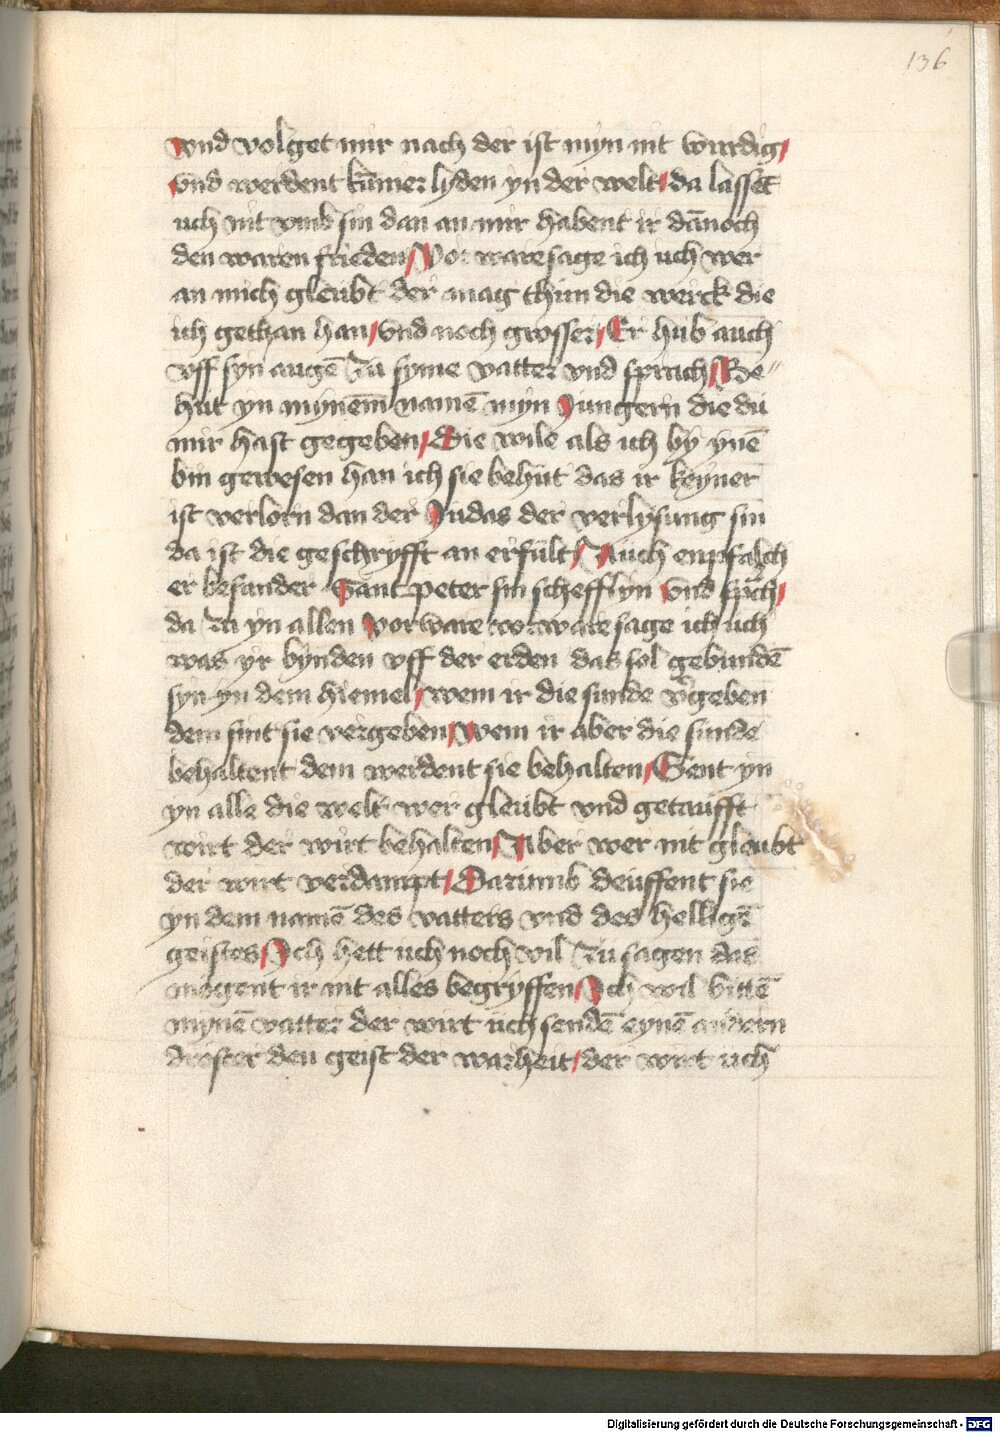 136
vnd volget mir nach der ist myn nit wirdig/
vnd werdent kūmer lyden yn der welt/ da lasset
uch nit vmb sin dan an mir habent ir dānoch
den waren frieden/ Vor ware sage ich uch wer
an mich gleubt der mag thun die werck die
ich gethan han/ vnd noch grosser/ Er hub auch
vff syn augē zu syme vatter vnd sprach/ Be"
hut yn mynem namē myn Jungern die du
mir hast gegeben/ Die wile als ich by ynē
bin gewesen han ich sie behut das ir keyner
ist verlorn dan der Judas der verlysung sin
da ist die geschryfft an erfult/ Auch enpfalch
er besunder Sant peter sin schefflyn vnd spͣch/
da zu yn allen vorware vorware sage ich uch
was yr bynden vff der erden das sol gebundē
syn yn dem hiemel/ wem ir die sunde v'geben
dem sint sie vergeben/ Wem ir aber die sunde
behaltent dem werdent sie behalten/ Gent yn
yn alle die welt wer gleubt vnd getaufft
wirt der wirt behalten/ Aber wer nit gleubt
der wirt verdampt/ Darumb deuffent sie
yn dem namē des vatters vnd des helligē
geistes/ Ich hett uch noch vil zu sagen das
mogent ir nit alles begryffen/ Ich wil bittē
mynē vatter der wirt uch sendē eynē andern
droster den geist der warheit/ der wirt uch
Digitalisierung gefördert durch die Deutsche Forschungsgemeinschaft - DFG